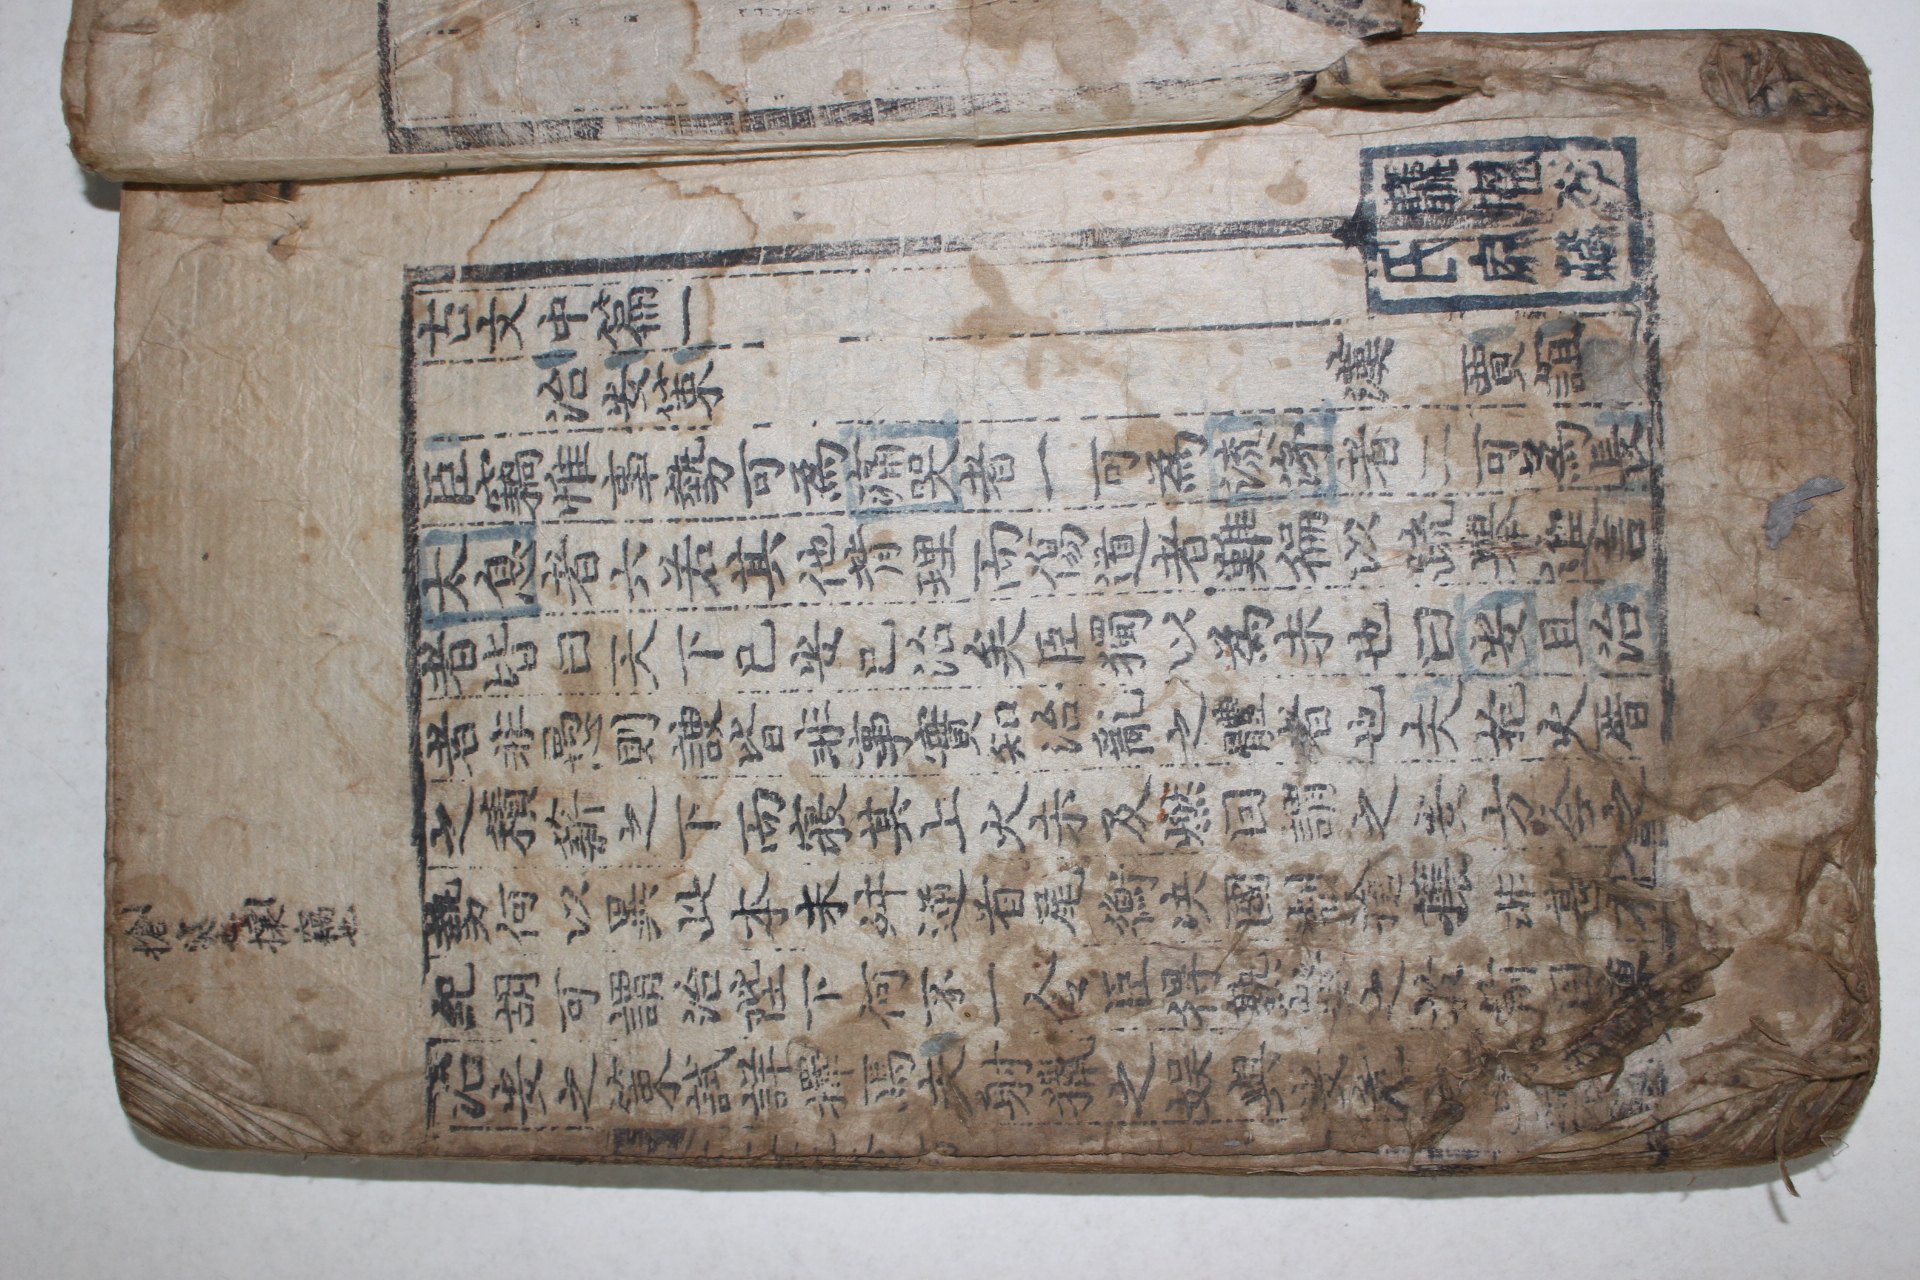 古文中篇一
治安策 漢 賈誼
臣竊惟事勢可為痛哭者一可為流涕者二可為長
太息者六若其他背理而傷道者難徧以疏舉進言
者皆曰天下已安已治矣臣獨以為未也曰安且治
者非愚則諛皆非事實知治亂之體者也夫抱火厝
之積薪之下而寢其上火未及燃因謂之安方今之
勢何以異此本末舛逆首尾衡決國制搶攘非甚有
紀胡可謂治陛下何不一令臣得熟數之於前因陳
治安之策試詳擇焉夫射獵之娛與安危
搶突也攘竊也
氏家藏